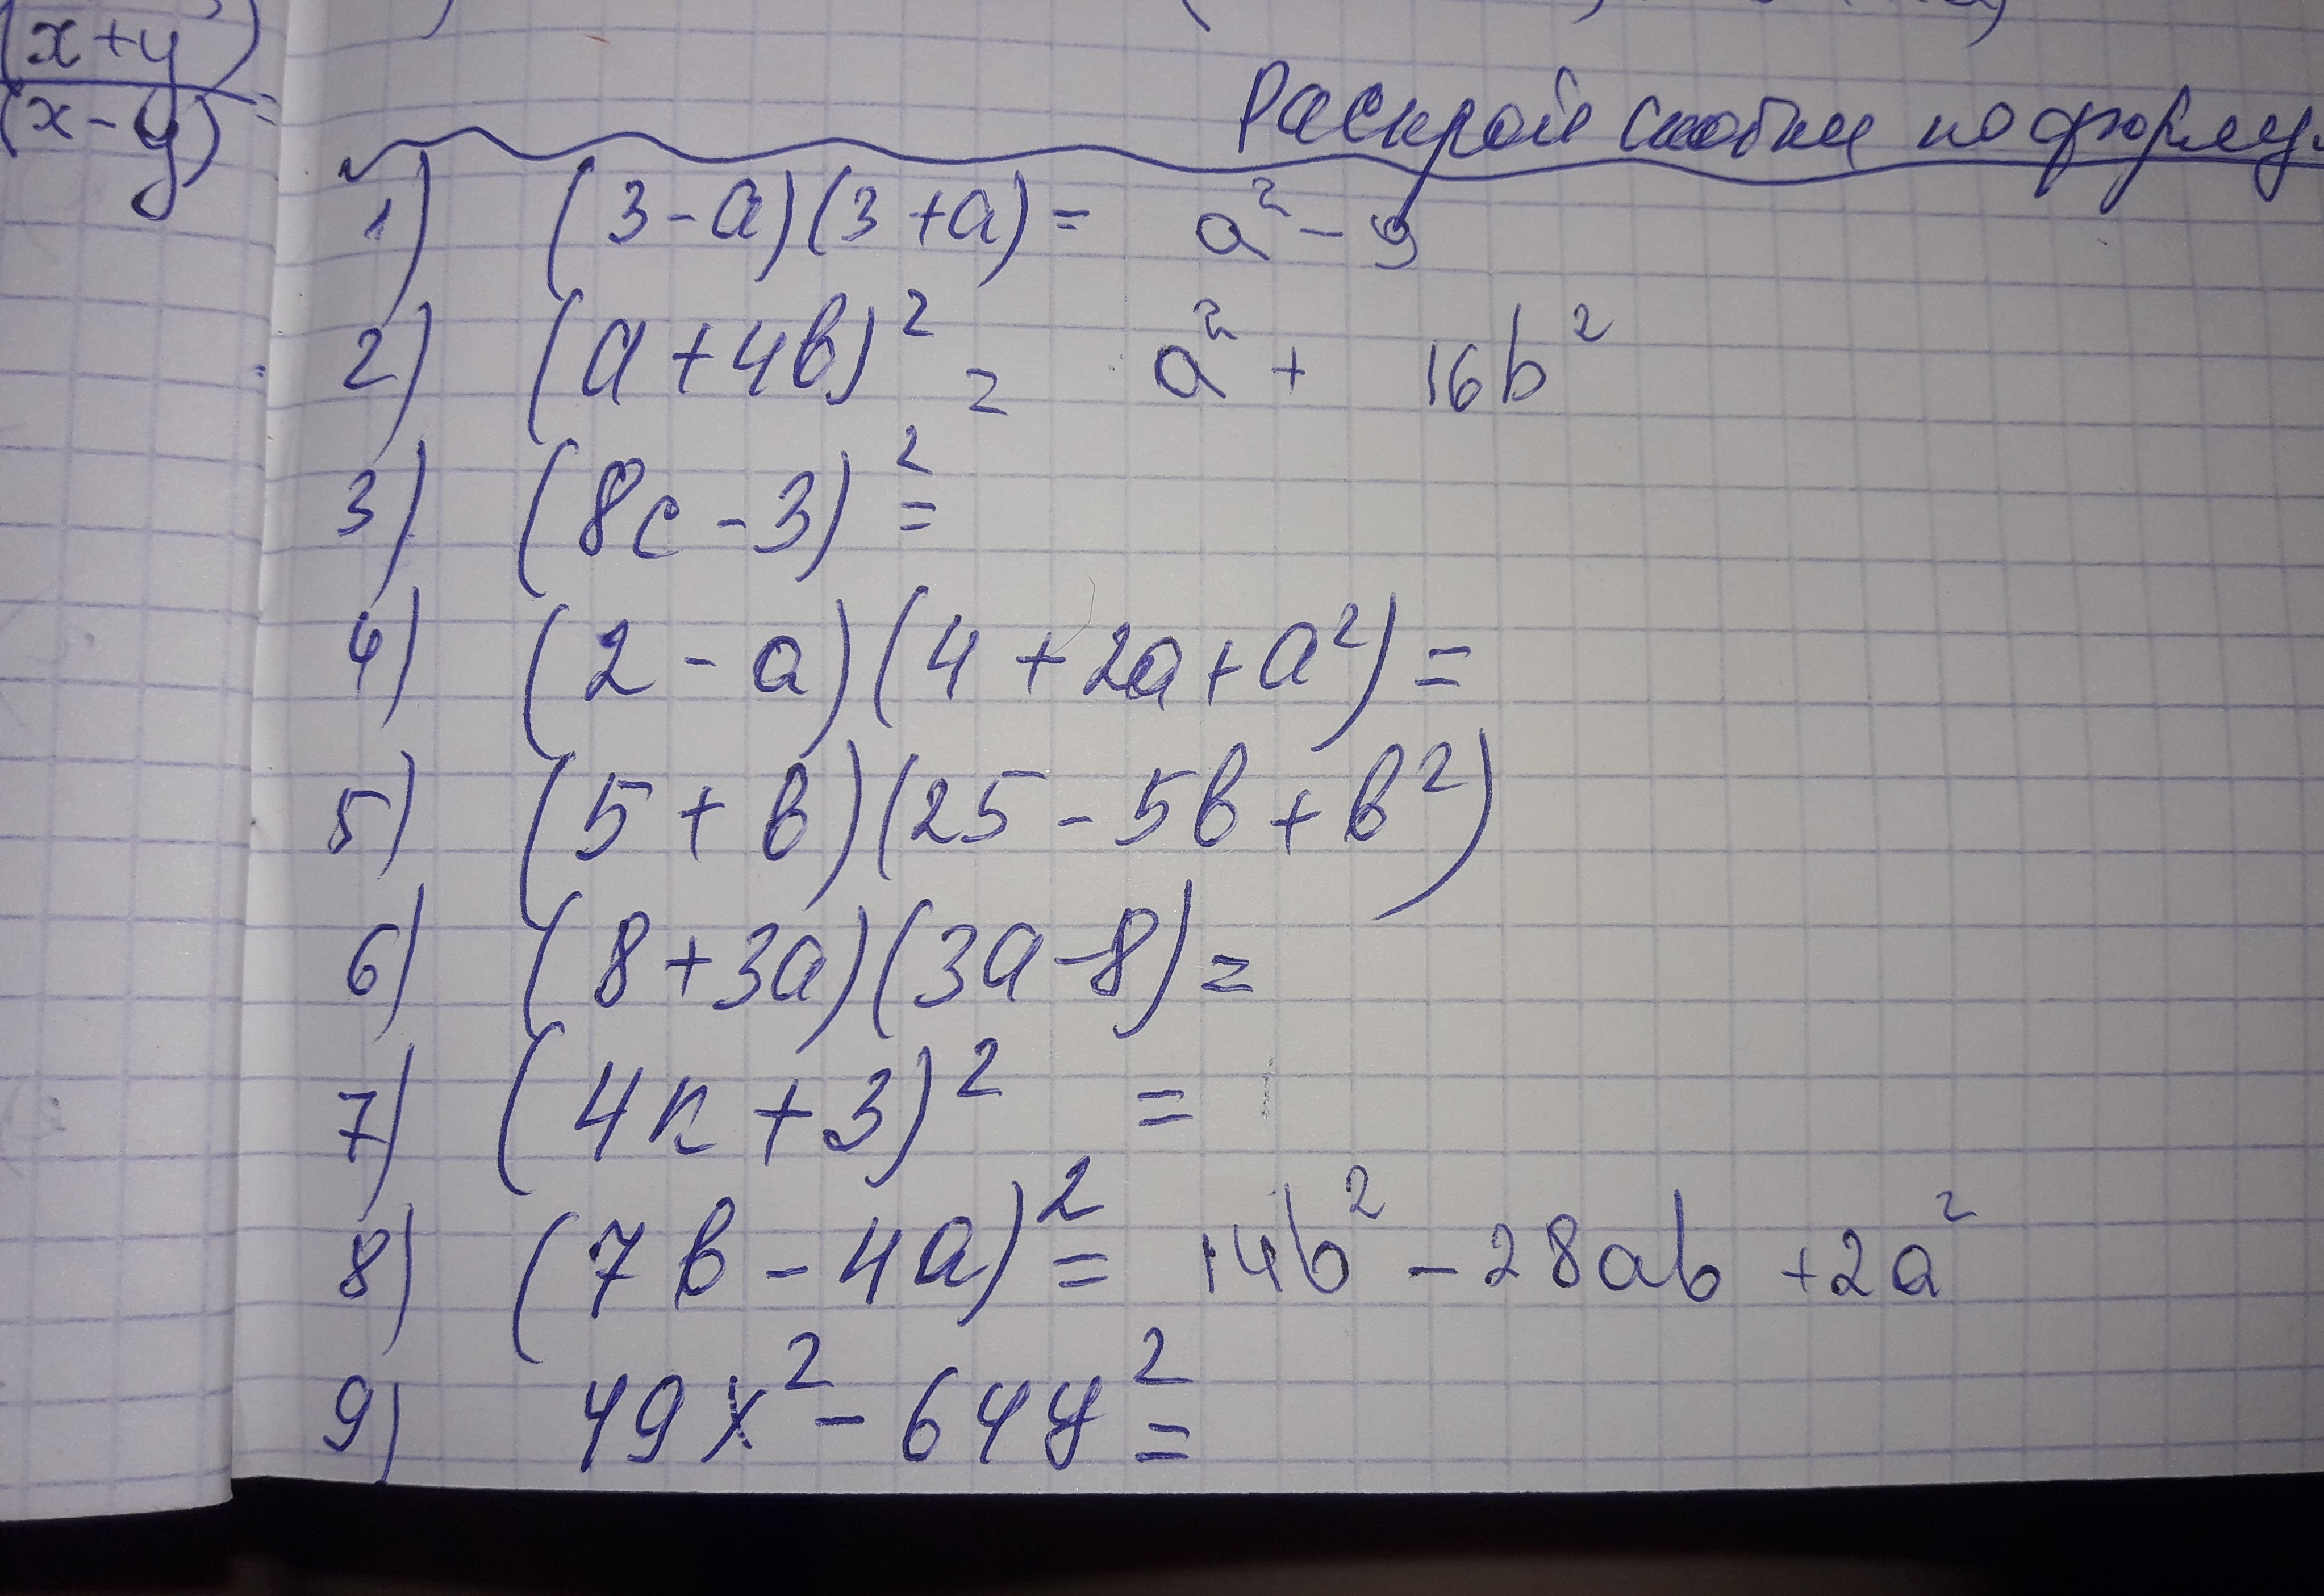 (x+y)
(x-y) =
Раскрой скобки по форму
1) (3-a)(3+a)= a² - 9
2) (a+4b)² = a² + 16b²
3) (8c-3)² =
4) (2-a)(4+2a+a²)=
5) (5+b)(25-5b+b²)
6) (8+3a)(3a-8)=
7) (4n+3)² =
8) (7b-4a)² = 14b² - 28ab + 2a²
9) 49x² - 64y² =